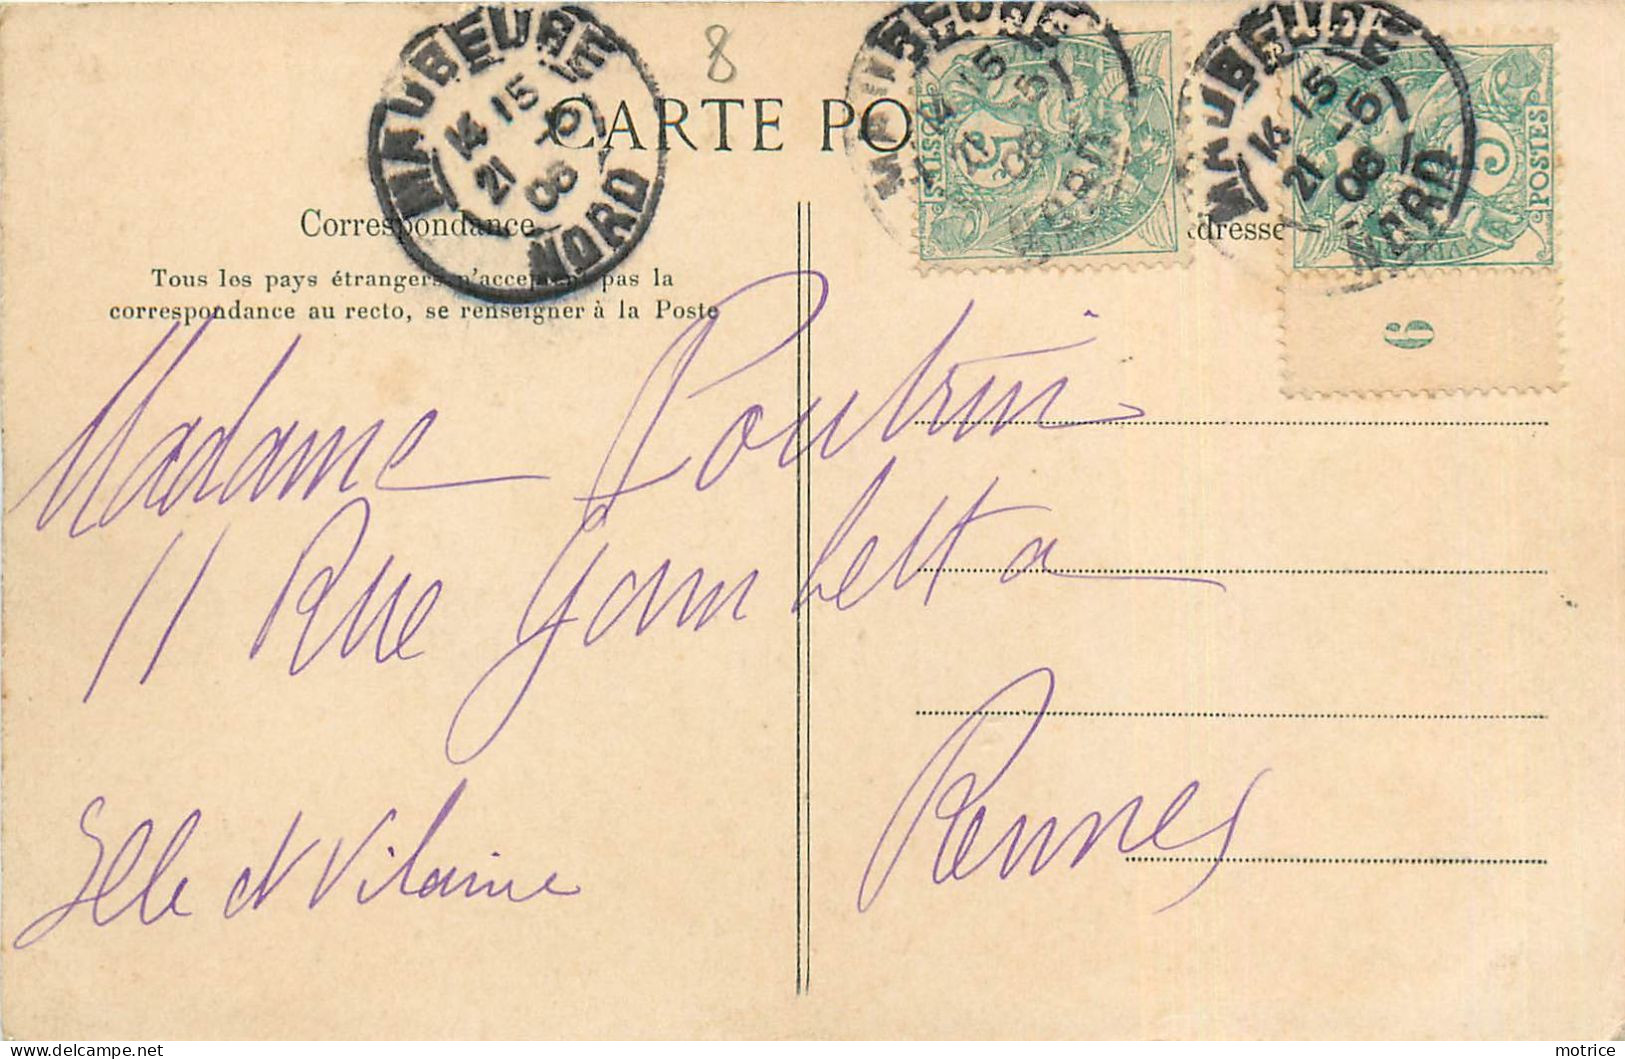 8
CARTE PO
MAUBEUGE
14 15
21 -5
08
NORD
MAUBEUGE
14 15
21 -5
08
MAUBEUGE
14 15
21 -5
08
NORD
5
5
POSTES
6
Correspondance
adresse
Tous les pays étrangers n'acceptent pas la
correspondance au recto, se renseigner à la Poste
Madame Poutrin
11 Rue Gambetta
Rennes
Ille et Vilaine
motrice